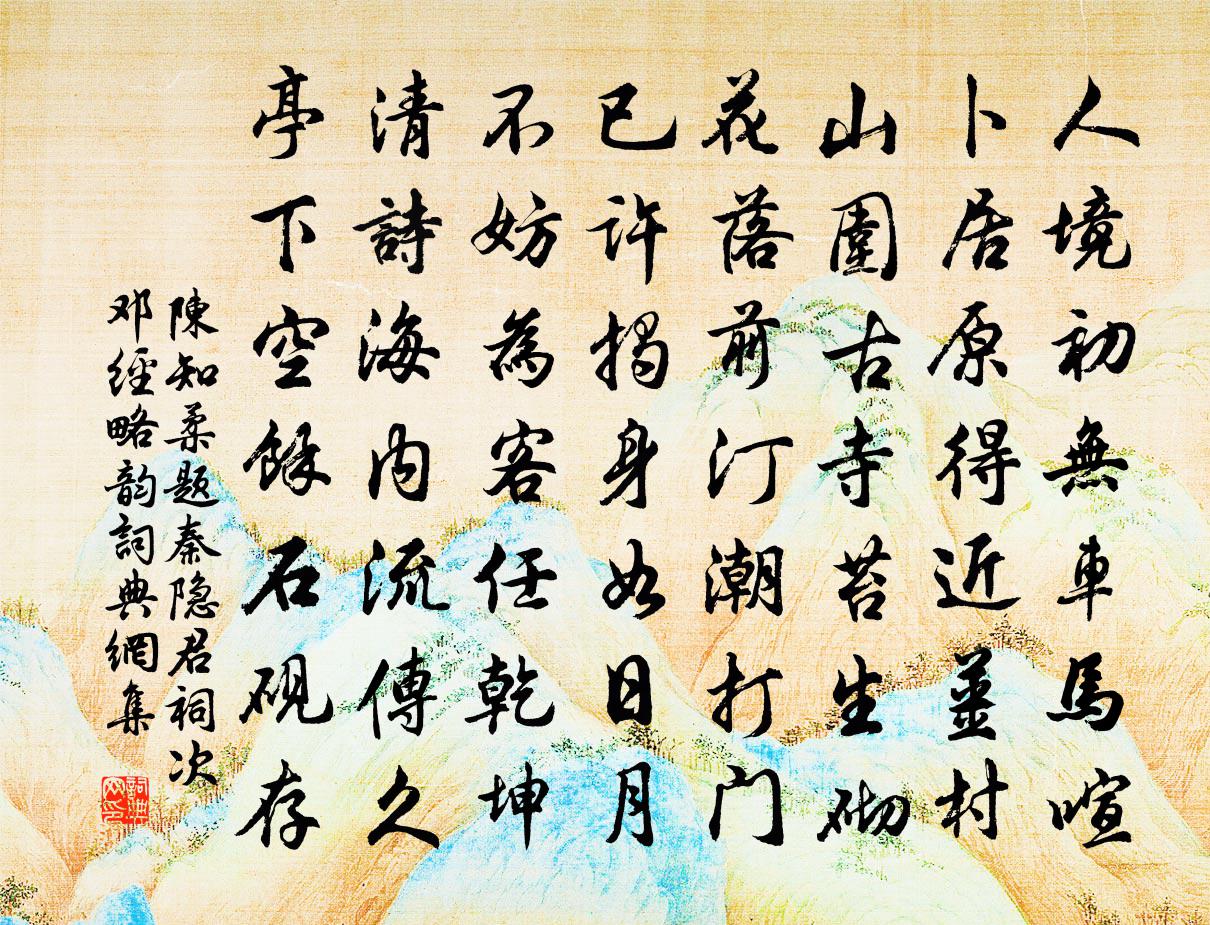 人境初無車馬喧
卜居原得近薑村
山圍古寺苔生砌
花落前汀潮打门
已许揭身如日月
不妨為客任乾坤
清詩海内流傳久
亭下空餘石砚存
陳知柔题秦隐君祠次
邓經略韵詞典網集
詞典